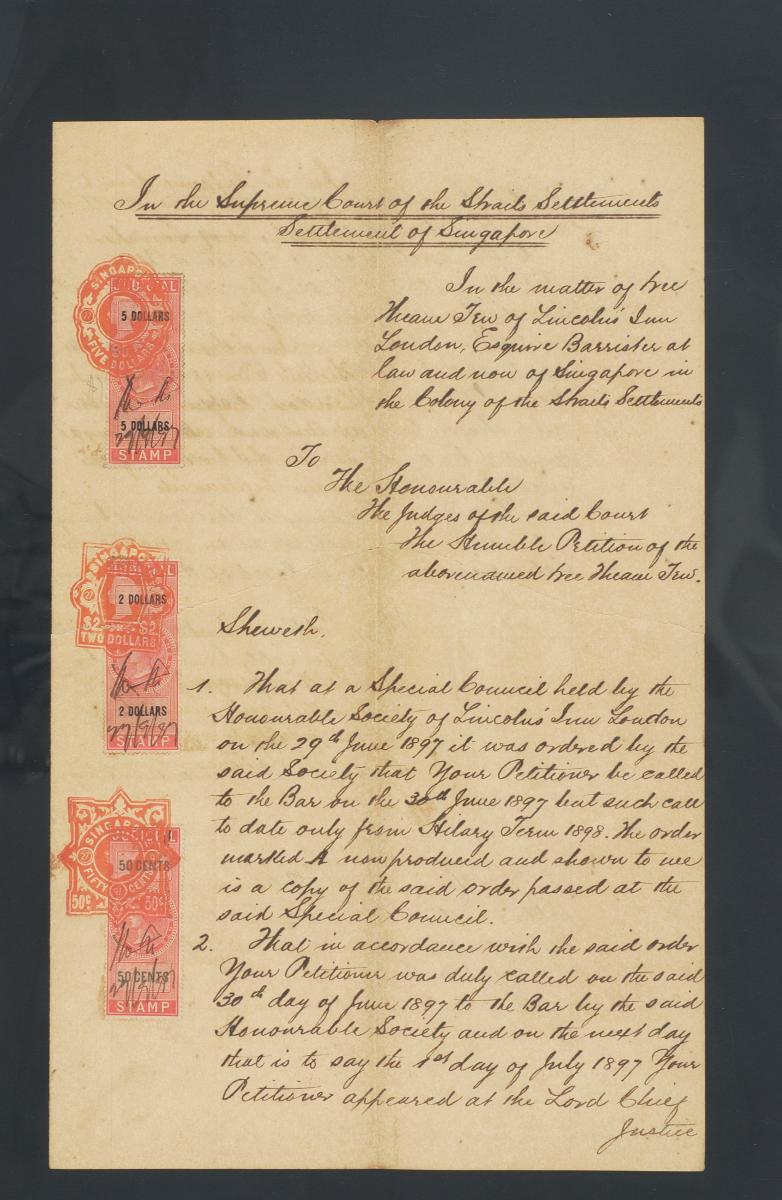 In the Supreme Court of the Straits Settlements
Settlement of Singapore
In the matter of tree
Heaw Tew of Lincoln's Inn
London, Esquire Barrister at
law and now of Singapore in
the Colony of the Straits Settlements
To
The Honourable
The Judges of the said Court
The Humble Petition of the
abovenamed tree Heaw Tew.
Sheweth.
1. That at a Special Council held by the
Honourable Society of Lincoln's Inn London
on the 29th June 1897 it was ordered by the
said Society that Your Petitioner be called
to the Bar on the 30th June 1897 but such call
to date only from Hilary Term 1898. The order
marked A now produced and shown to me
is a copy of the said order passed at the
said Special Council.
2. That in accordance with the said order
Your Petitioner was duly called on the said
30th day of June 1897 to the Bar by the said
Honourable Society and on the next day
that is to say the 1st day of July 1897 Your
Petitioner appeared at the Lord Chief
Justice
SINGAPORE
JUDICIAL
5 DOLLARS
FIVE DOLLARS
5 DOLLARS
27/9/97
STAMP
SINGAPORE
JUDICIAL
2 DOLLARS
$2 $2
TWO DOLLARS
2 DOLLARS
27/9/97
STAMP
SINGAPORE
JUDICIAL
27
50 CENTS
FIFTY CENTS
50c 50c
50 CENTS
27/9/97
STAMP